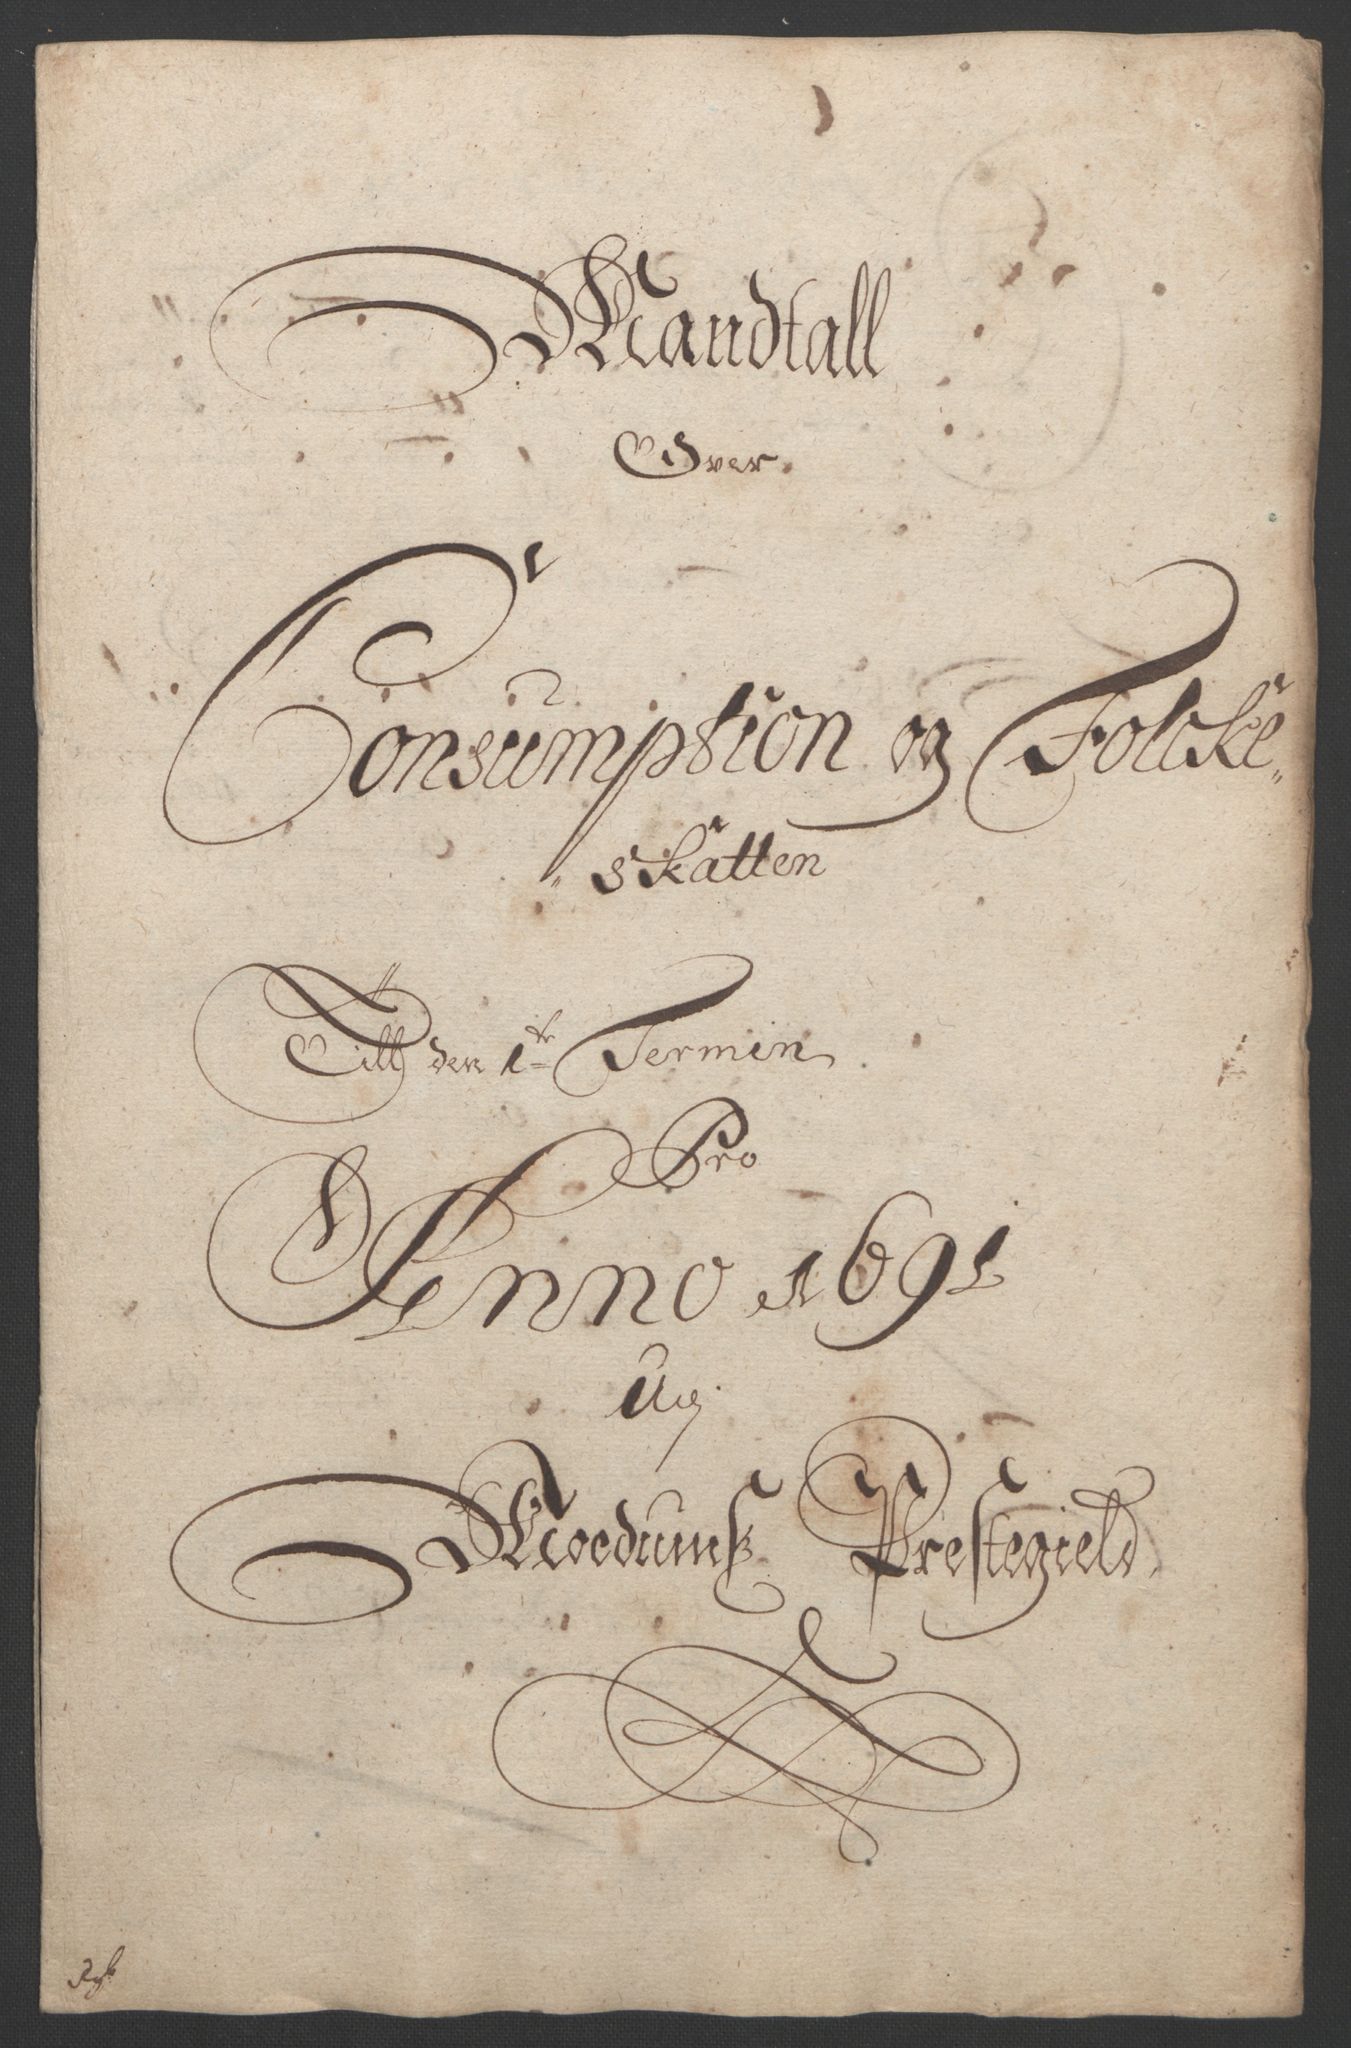 Mandtall
Over
Consumption og Folcke„
„skatten
Till den 1te Termin
Pro
Anno 1691
Udj
Moedumß Prestegield